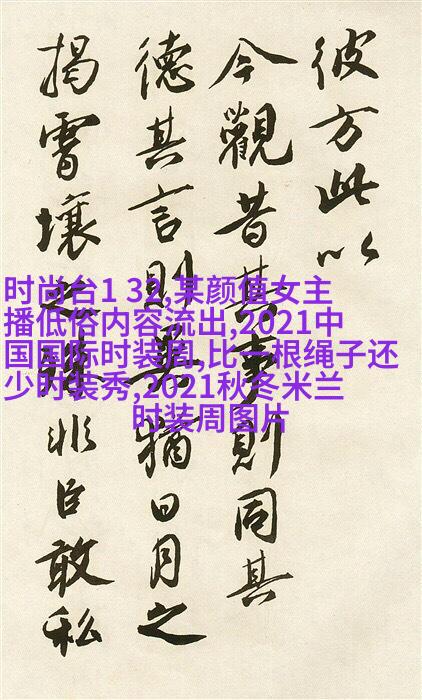 彼方此以
今觀昔其事則同其
德其言則異猶日月之
揭霄壤之非臣敢私
时尚台1 32,某颜值女主
播低俗内容流出,2021中
国国际时装周,比一根绳子还
少时装秀,2021秋冬米兰
时装周图片